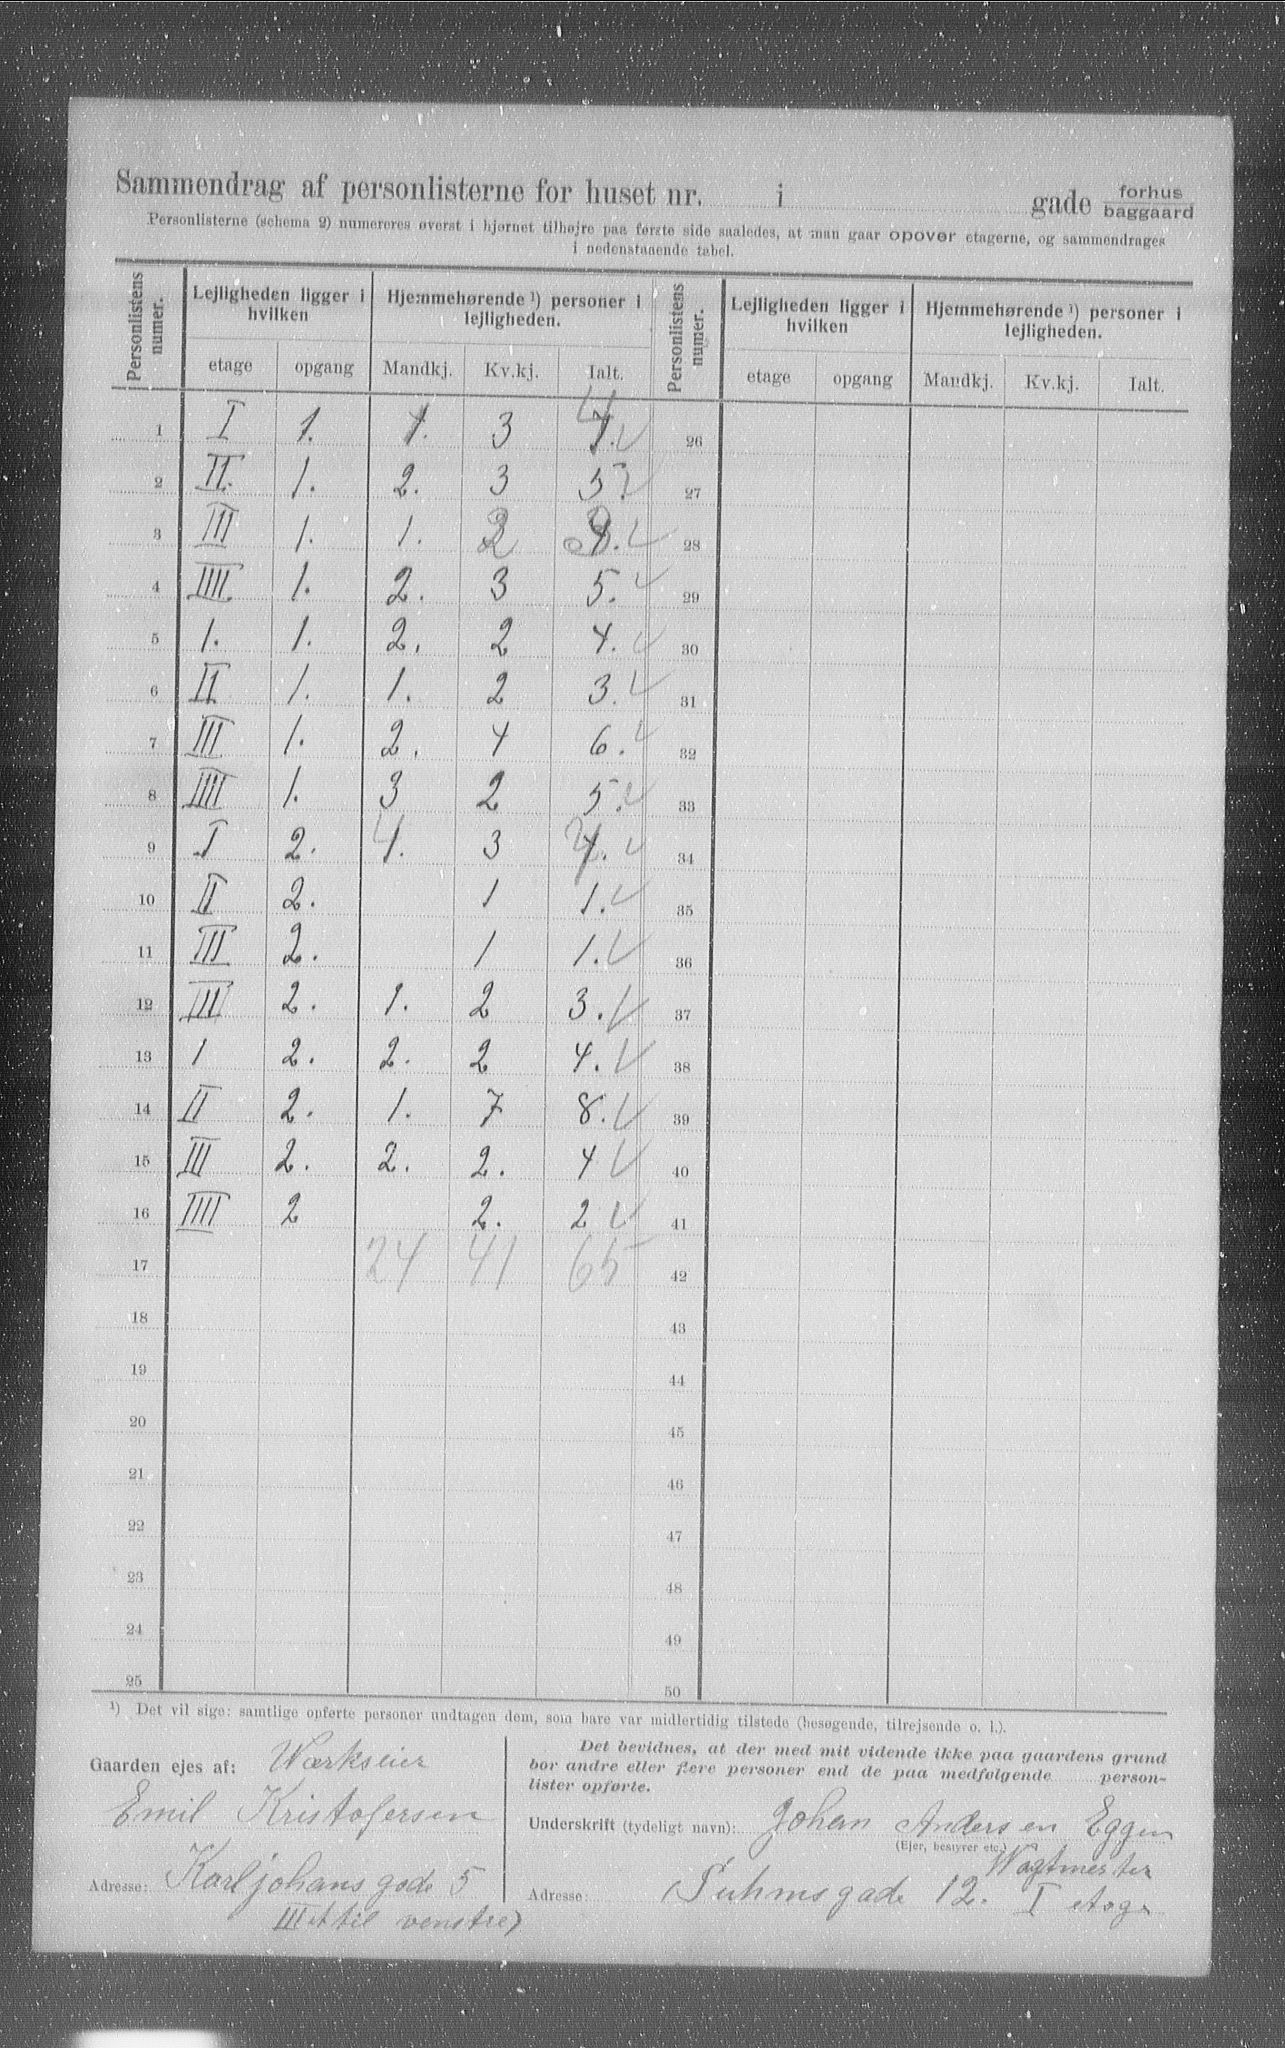 Sammendrag af personlisterne for huset nr. i gade forhus
baggaard
Personlisterne (schema 2) numereres øverst i hjørnet tilhøjre paa første side saaledes, at man gaar opover etagerne, og sammendrages
i nedenstaaende tabel.
Personlistens numer. Lejligheden ligger i hvilken Hjemmehørende ¹) personer i lejligheden. Personlistens numer. Lejligheden ligger i hvilken Hjemmehørende ¹) personer i lejligheden.
etage opgang Mandkj. Kv.kj. Ialt. etage opgang Mandkj. Kv.kj. Ialt.
1 I 1. 1. 3 4 26
2 II. 1. 2. 3 5. 27
3 III 1. 1. 2 3. 28
4 IIII 1. 2. 3 5. 29
5 1. 1. 2. 2 4. 30
6 II 1. 1. 2 3. 31
7 III 1. 2. 4 6. 32
8 IIII 1. 3 2 5. 33
9 I 2. 4. 3 7. 34
10 II 2. 1 1. 35
11 III 2. 1 1. 36
12 IIII 2. 1. 2 3. 37
13 1 2. 2. 2 4. 38
14 II 2. 1. 7 8. 39
15 III 2. 2. 2. 4 40
16 IIII 2 2. 2 41
17 24 41 65 42
18 43
19 44
20 45
21 46
22 47
23 48
24 49
25 50
¹) Det vil sige: samtlige opførte personer undtagen dem, som bare var midlertidig tilstede (besøgende, tilrejsende o. l.).
Gaarden ejes af: Værkseier
Emil Kristofersen
Adresse: Karljohans gade 5
III et til venstre)
Det bevidnes, at der med mit vidende ikke paa gaardens grund
bor andre eller flere personer end de paa medfølgende person-
lister opførte.
Underskrift (tydeligt navn): Johan Andersen Eggen
(Ejer, bestyrer etc.)
Vagtmester
Adresse: Suhmsgade 12. I etage